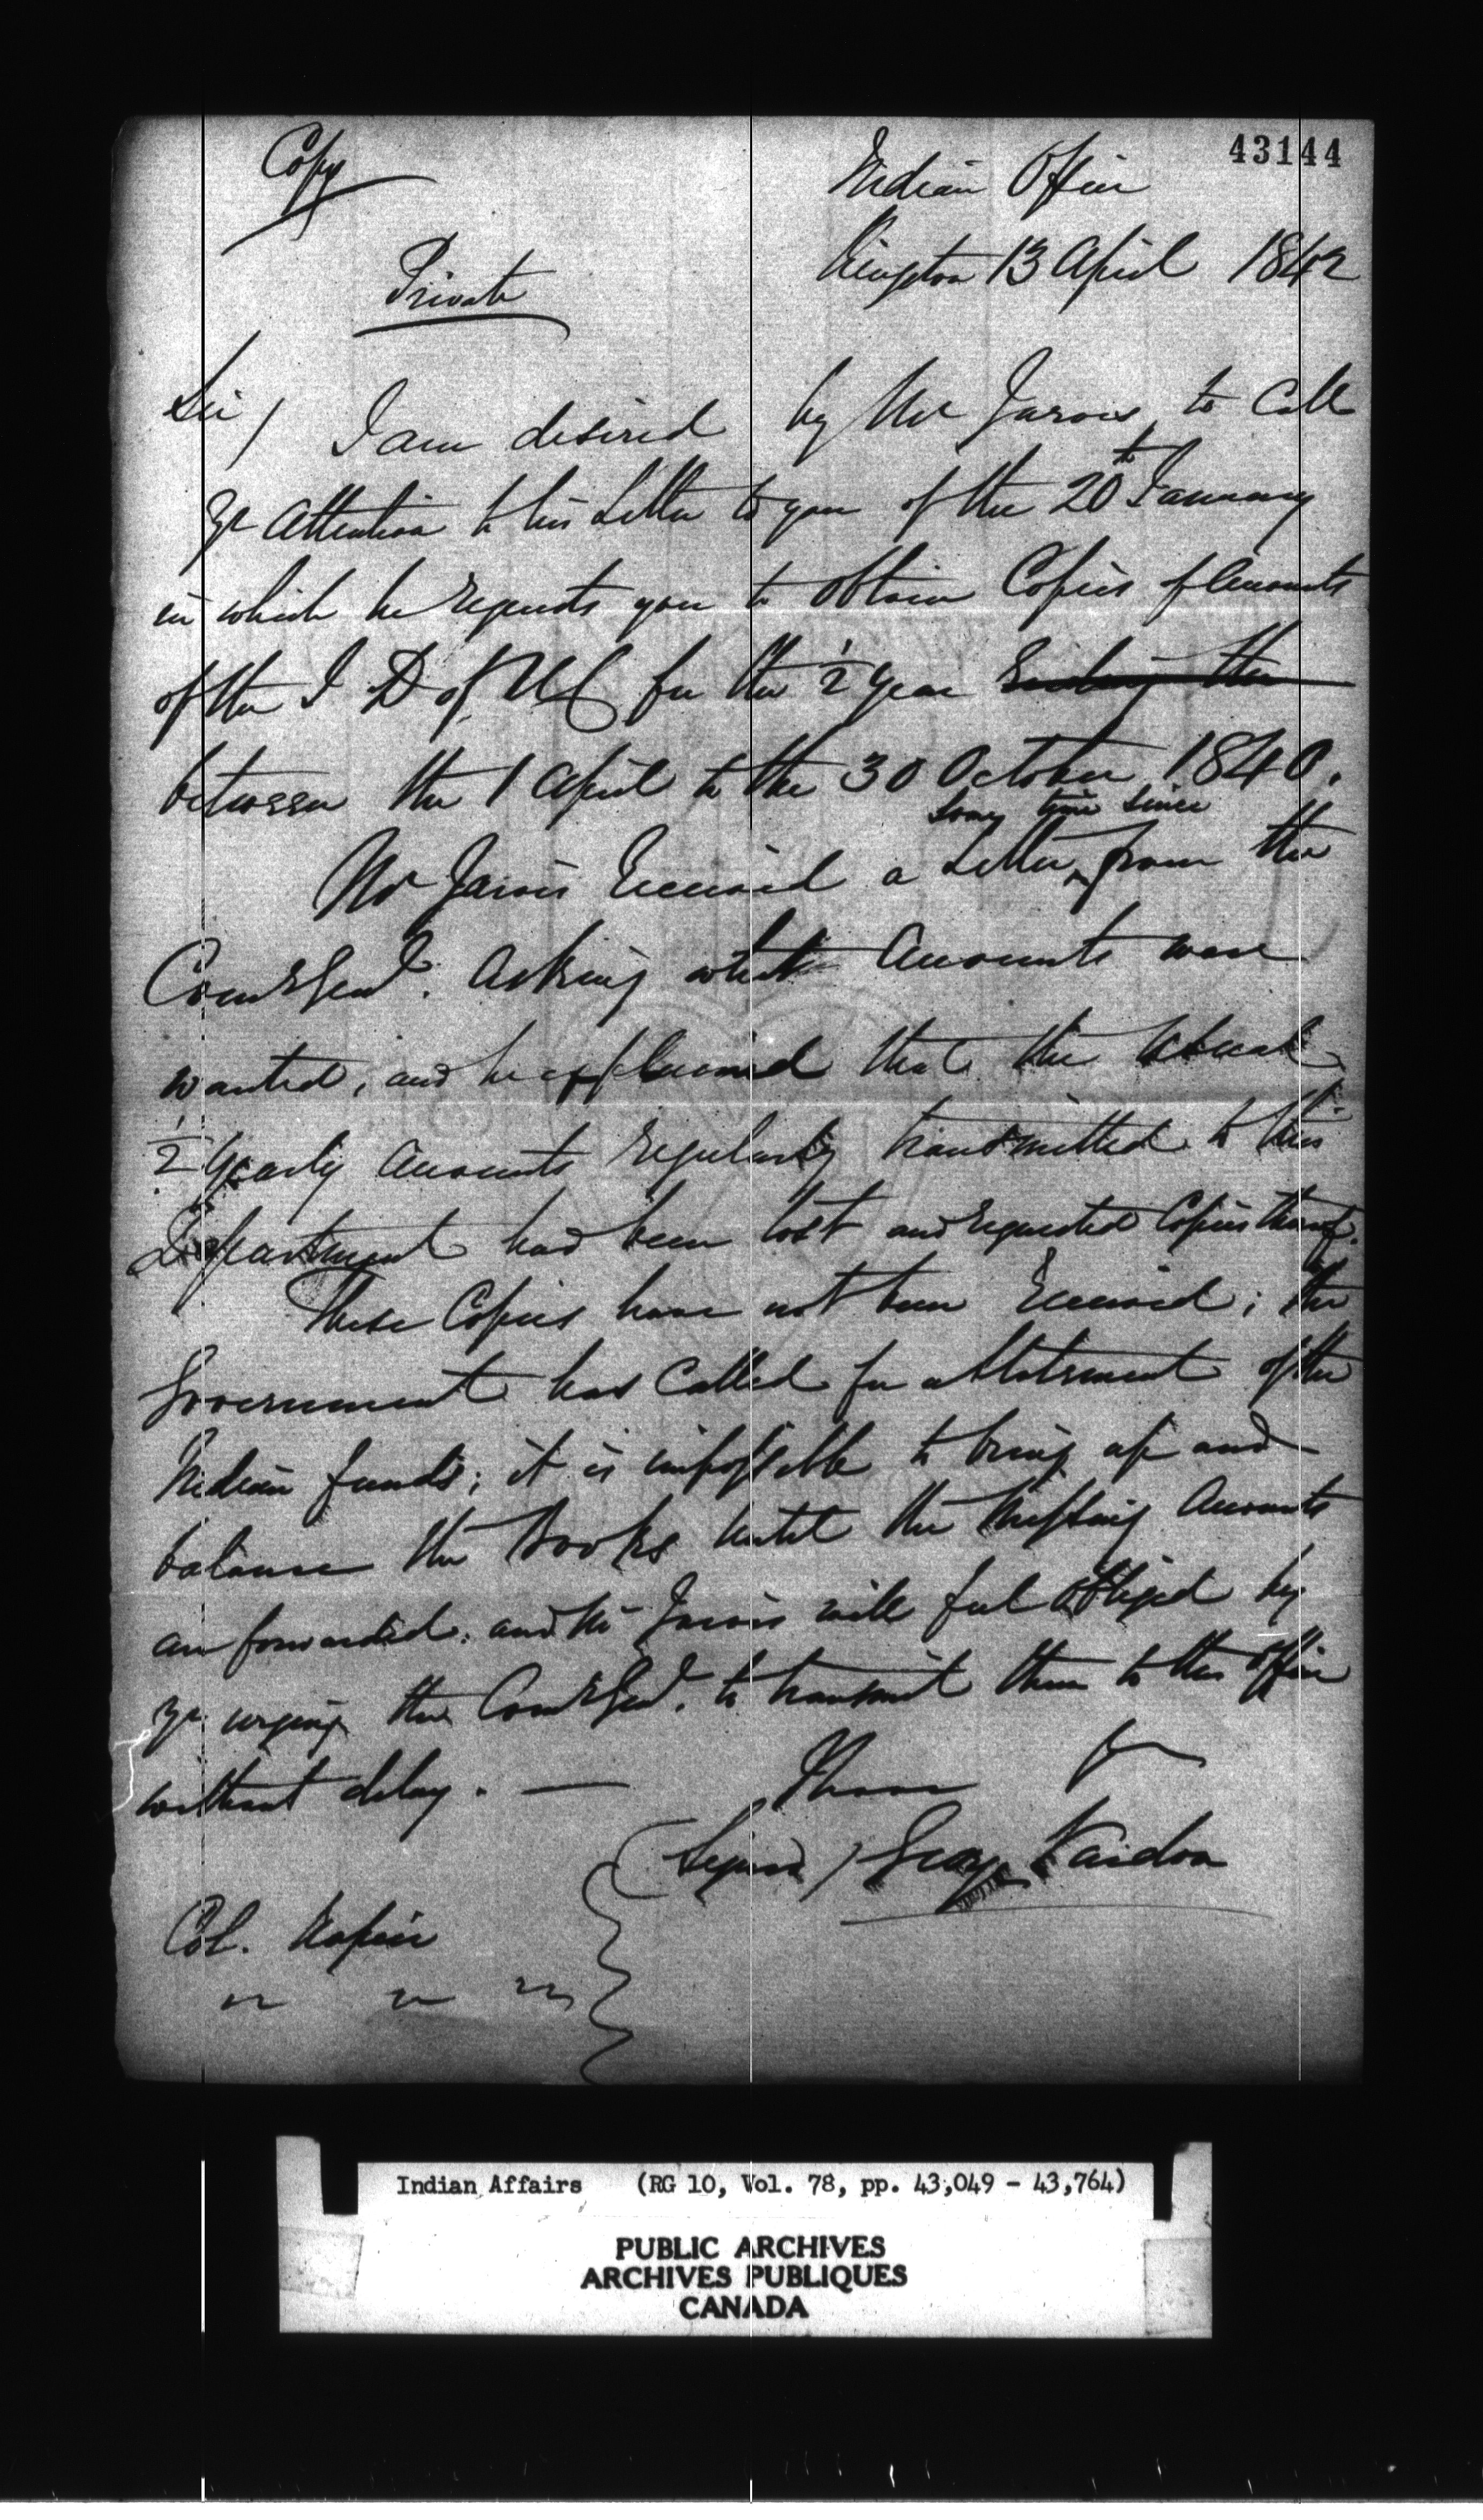 43144
Copy
Indian Office
Kingston 13 April 1842
Private
Sir / I am desired by Mr Jarvis to Call
yr Attention to his Letter to you of the 20th January
in which he requests you to obtain Copies of Accounts
of the I D of UC for the 1/2 year Ending the
between the 1 April to the 30 October 1840.
some time since
Mr Jarvis Received a Letter ‸ from the
Com Genl. Asking what Accounts were
wanted, and he explained that the usual
1/2 yearly Accounts regularly transmitted to this
Department had been lost and requested Copies thereof.
These Copies have not been Received; the
Government has Called for a Statement of the
Indian funds; it is impossible to bring up and
balance the Books until the missing Accounts
are forwarded. and Mr Jarvis will feel obliged by
yr urging the Com Genl. to transmit them to this office
without delay. —
I have &
(Signed) George Vardon
Col. Napier
Indian Affairs (RG 10, Vol. 78, pp. 43,049 - 43,764)
PUBLIC ARCHIVES
ARCHIVES PUBLIQUES
CANADA